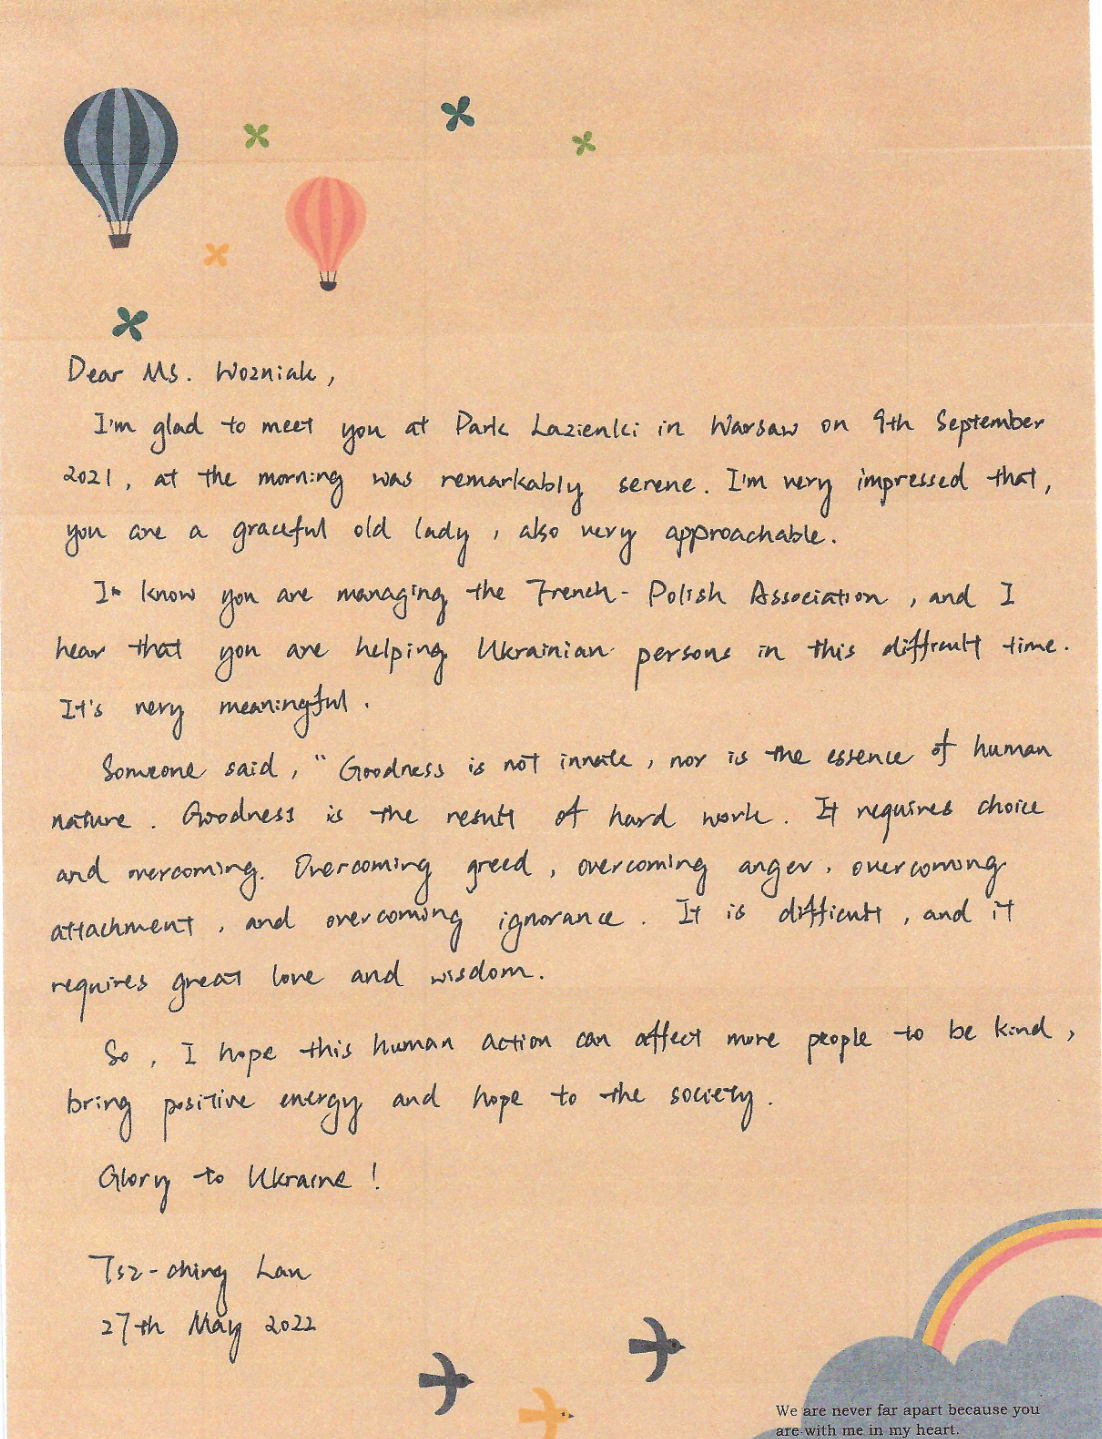 Dear Ms. Wozniak,
I'm glad to meet you at Park Lazienki in Warsaw on 9th September
2021, at the morning was remarkably serene. I'm very impressed that,
you are a graceful old lady, also very approachable.
I know you are managing the French-Polish Association, and I
hear that you are helping Ukrainian persons in this difficult time.
It's very meaningful.
Someone said, "Goodness is not innate, nor is the essence of human
nature. Goodness is the result of hard work. It requires choice
and overcoming. Overcoming greed, overcoming anger, overcoming
attachment, and overcoming ignorance. It is difficult, and it
requires great love and wisdom.
So, I hope this human action can affect more people to be kind,
bring positive energy and hope to the society.
Glory to Ukraine!
Tsz-ching Lau
27th May 2022
We are never far apart because you
are with me in my heart.